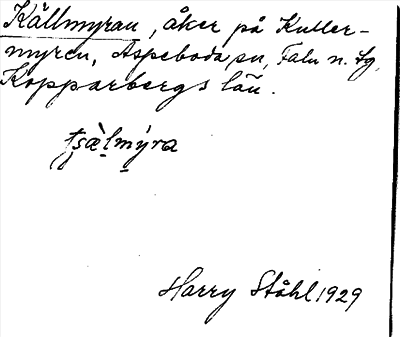 Källmyran, åker på Kuller-
myren, Aspeboda sn, Falu n. tg,
Kopparbergs län.
t̯sæ̀l̥mýra
Harry Ståhl 1929